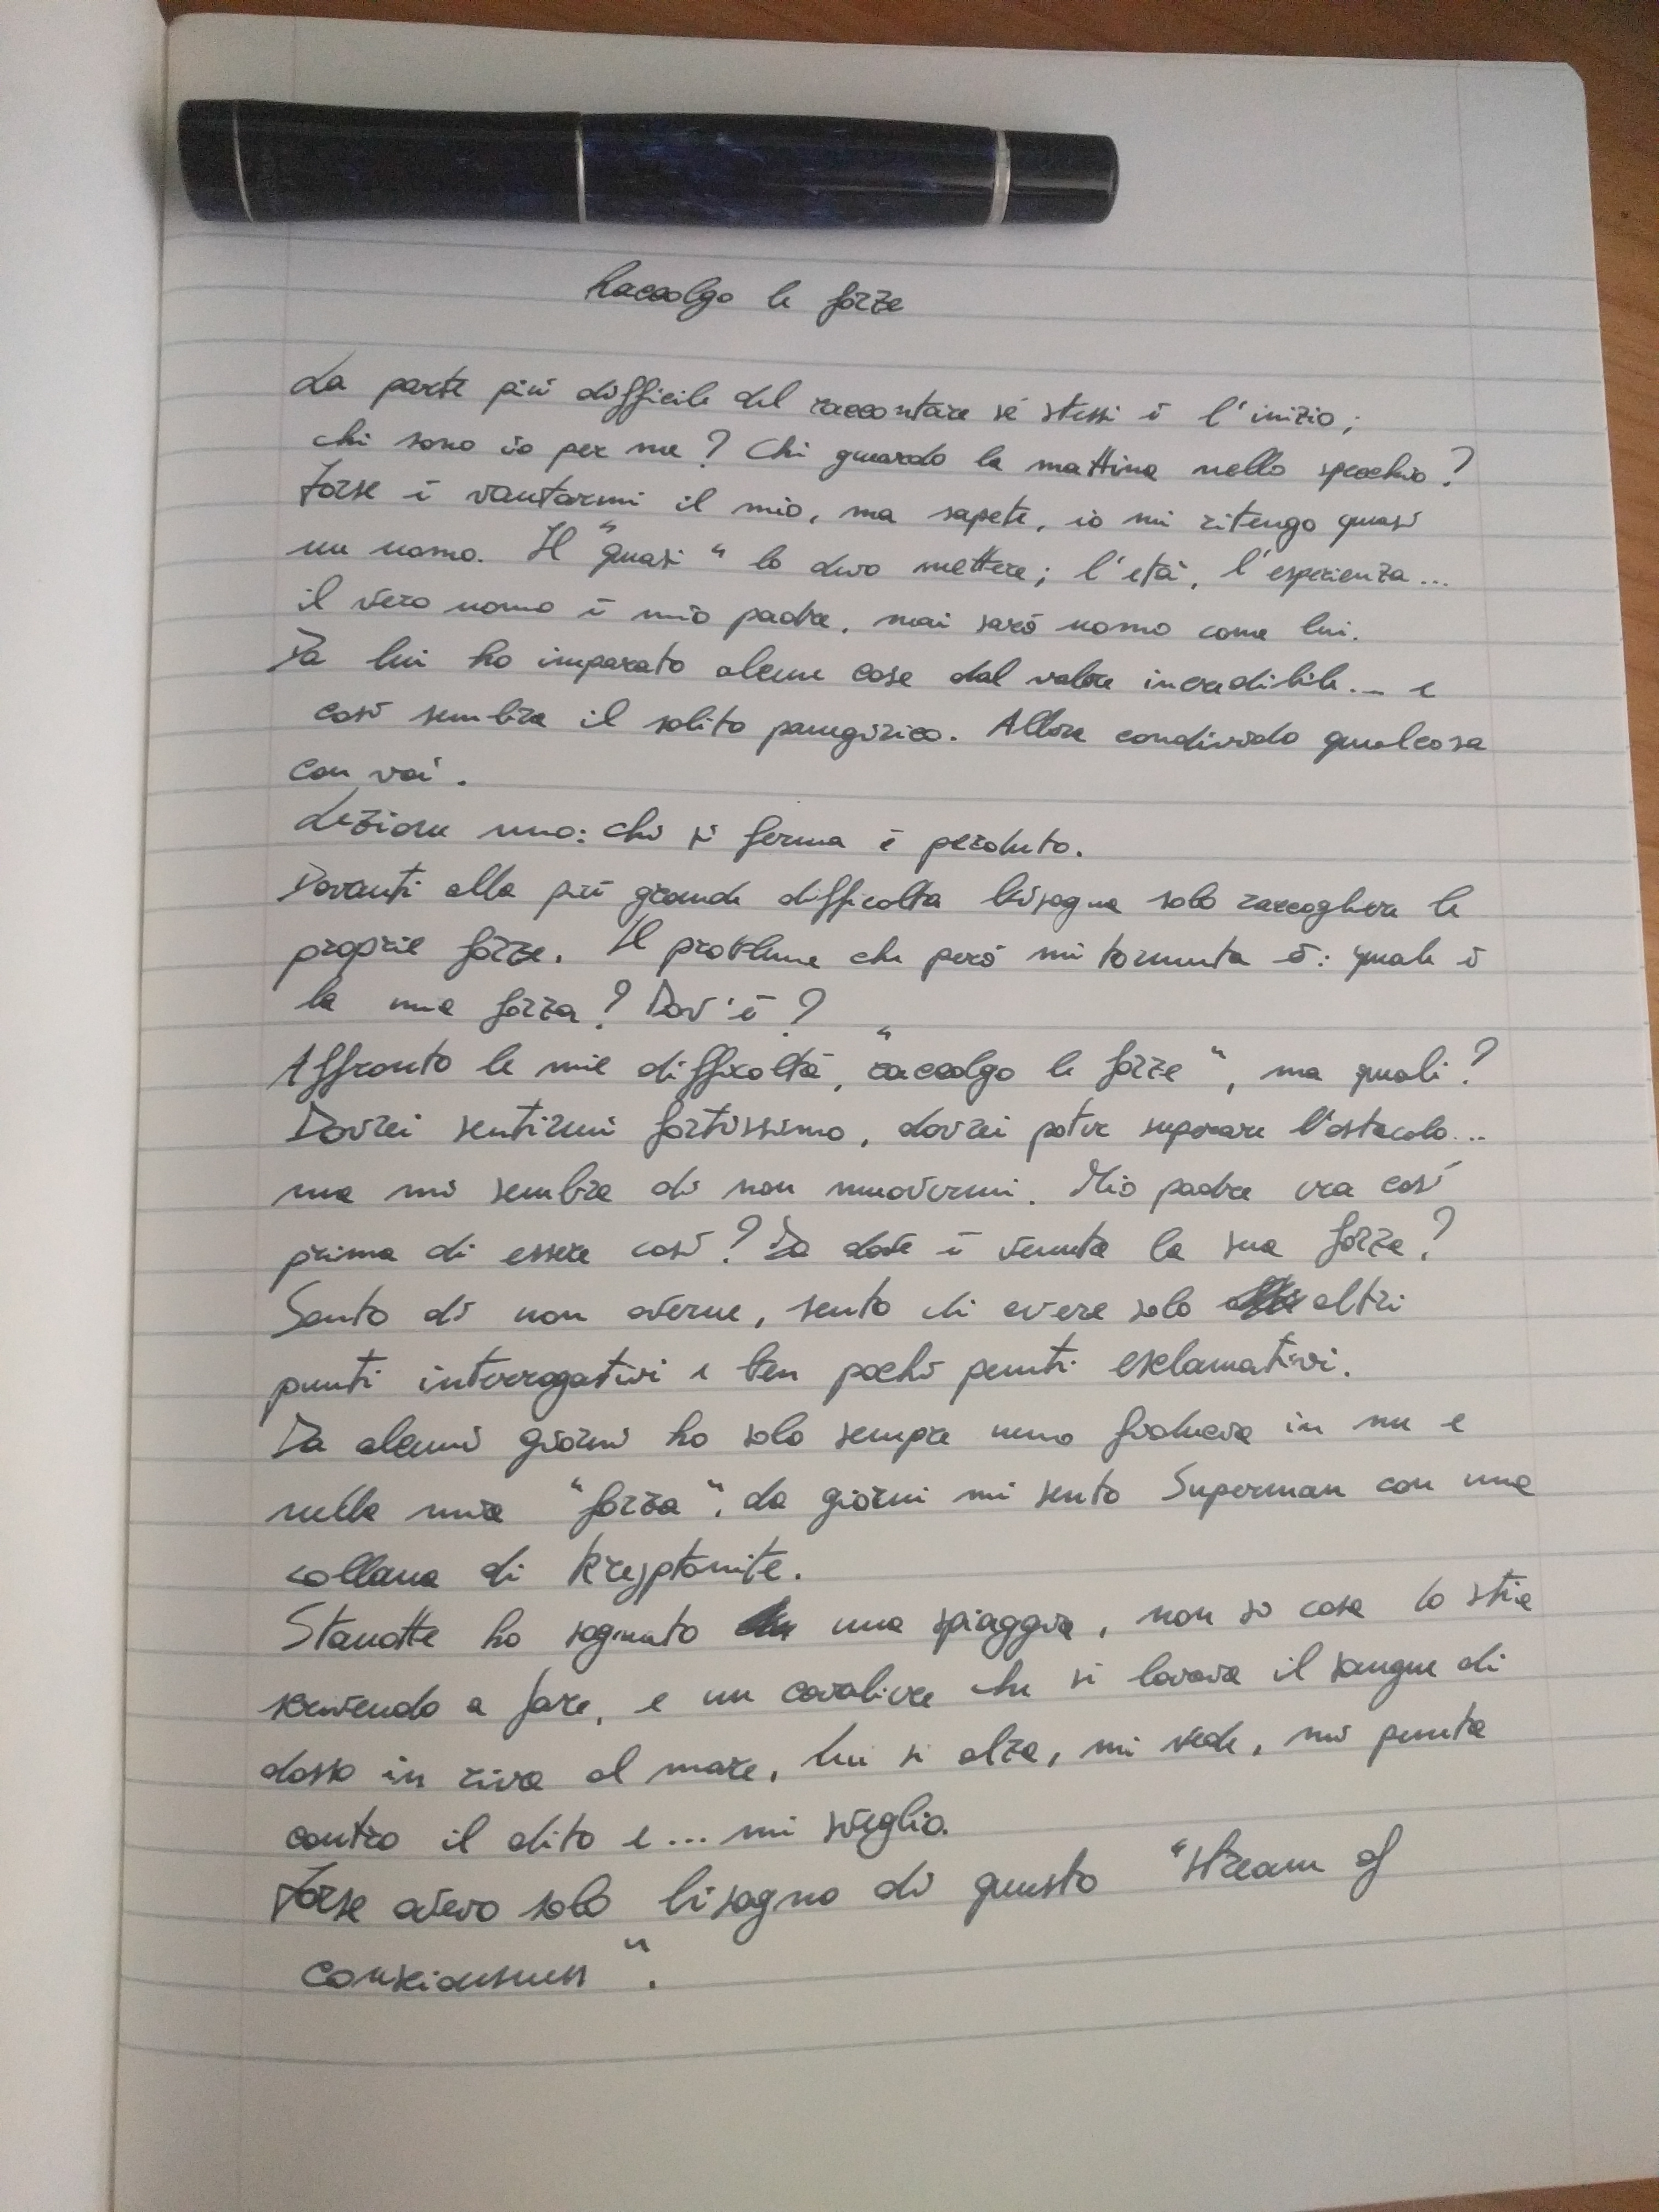 Raccolgo le forze
La parte più difficile del raccontare sé stessi è l'inizio;
chi sono io per me? Chi guardo la mattina nello specchio?
Forse è vantarmi il mio, ma sapete, io mi ritengo quasi
un uomo. Il "quasi" lo devo mettere; l'età, l'esperienza...
il vero uomo è mio padre, mai sarò uomo come lui.
Da lui ho imparato alcune cose dal valore incredibile... e
così sembra il solito panegirico. Allora condivido qualcosa
con voi.
Lezione uno: chi si ferma è perduto.
Davanti alla più grande difficoltà bisogna solo raccogliere le
proprie forze. Il problema che però mi tormenta è: quale è
la mia forza? Dov'è?
Affronto le mie difficoltà, "raccolgo le forze", ma quali?
Dovrei sentirmi fortissimo, dovrei poter superare l'ostacolo...
ma mi sembra di non muovermi. Mio padre era così
prima di essere così? Da dove è venuta la sua forza?
Sento di non averne, sento di avere solo altri
punti interrogativi e ben pochi punti esclamativi.
Da alcuni giorni ho solo sempre meno fiducia in me e
nella mia "forza", da giorni mi sento Superman con una
collana di Kryptonite.
Stanotte ho sognato una spiaggia, non so cosa lo stia
scrivendo a fare, e un cavaliere che si lavava il sangue di
dosso in riva al mare, lui si alza, mi vede, mi punta
contro il dito e... mi sveglio.
Forse avevo solo bisogno di questo "stream of
consciousness".